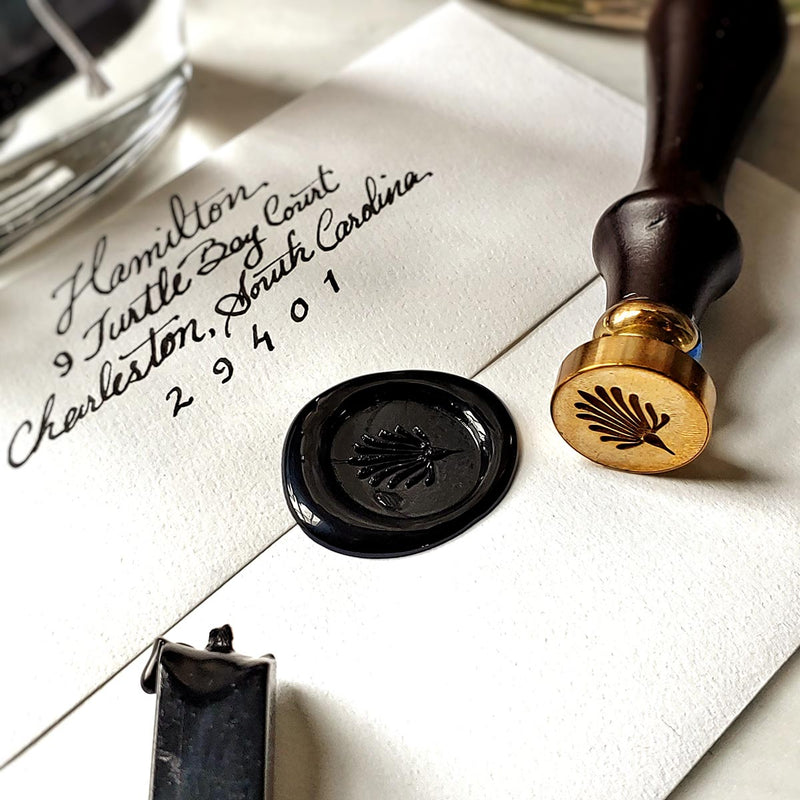 Hamilton.
9 Turtle Bay Court
Charleston, South Carolina.
29401